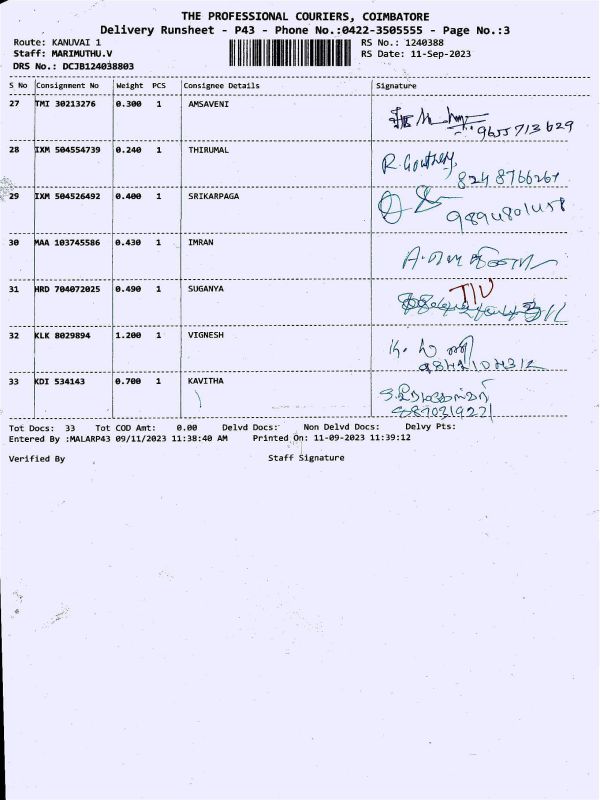 THE PROFESSIONAL COURIERS, COIMBATORE
Delivery Runsheet - P43 - Phone No.:0422-3505555 - Page No.:3
Route: KANUVAI 1 RS No.: 1240388
Staff: MARIMUTHU.V RS Date: 11-Sep-2023
DRS No.: DCJB124038803
S No Consignment No Weight PCS Consignee Details Signature
27 TMI 30213276 0.300 1 AMSAVENI
9655713629
28 IXM 504554739 0.240 1 THIRUMAL R.Gowtham
8248766267
29 IXM 504526492 0.400 1 SRIKARPAGA
30 MAA 103745586 0.430 1 IMRAN
31 HRD 704072025 0.490 1 SUGANYA
32 KLK 8029894 1.200 1 VIGNESH
33 KDI 534143 0.700 1 KAVITHA
Tot Docs: 33 Tot COD Amt: 0.00 Delvd Docs: Non Delvd Docs: Delvy Pts:
Entered By :MALARP43 09/11/2023 11:38:40 AM Printed On: 11-09-2023 11:39:12
Verified By Staff Signature